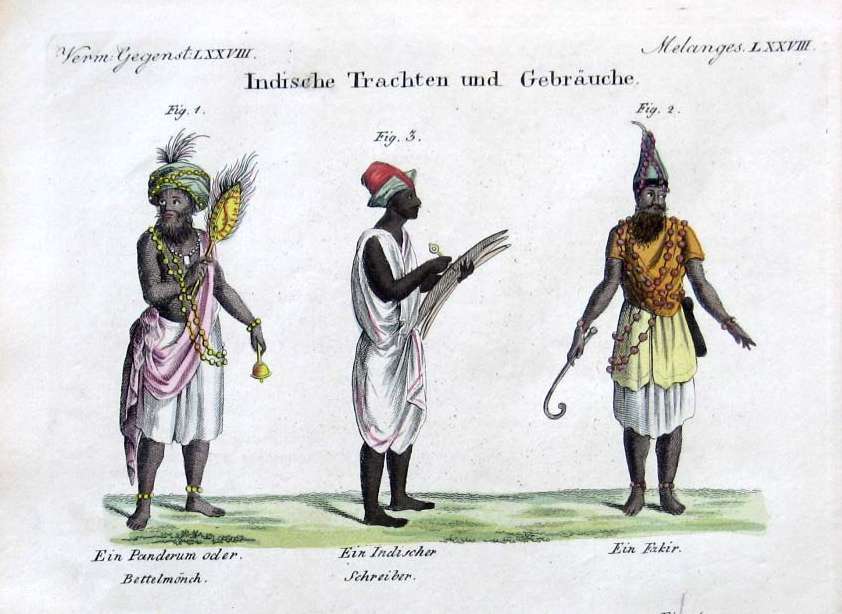 Verm: Gegenst: LXXVIII.
Melanges. LXXVIII.
Indische Trachten und Gebräuche.
Fig. 1.
Fig. 3.
Fig. 2.
Ein Panderum oder
Bettelmönch.
Ein Indischer
Schreiber.
Ein Fakir.